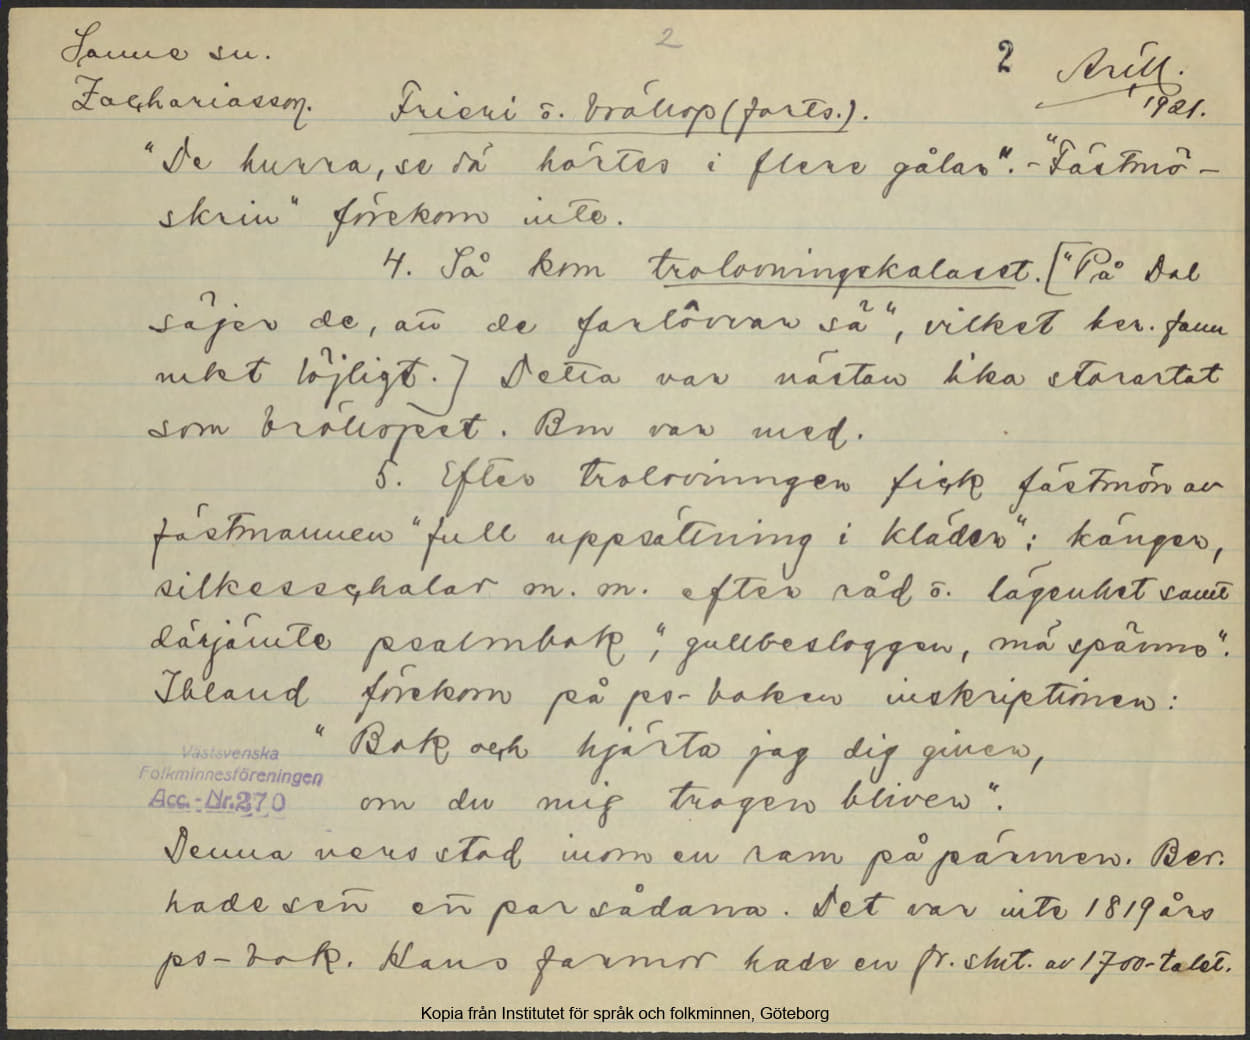 2
Sanne sn. 2 Arill.
Zachariasson. Frieri o. bröllop (forts.). 1921.
"De hurra, se dä hörtes i flere gålar". - "Fästmö-
skrin" förekom inte.
4. Så kom trolovningskalaset. ["På Dal
säjer de, att de farlôvvar sä", vilket ber. fann
mkt löjligt.] Detta var nästan lika storartat
som bröllopet. Bm var med.
5. Efter trolovningen fick fästmön av
fästmannen "full uppsättning i kläder": kängor,
silkesschalar m. m. efter råd o. lägenhet samt
därjämte psalmbok, "gullbesloggen, mä spänne".
Ibland förekom på ps-boken inskriptionen:
"Bok och hjärta jag dig giver,
om du mig trogen bliver".
Västsvenska
Folkminnesföreningen
Acc.-Nr. 270
Denna vers stod inom en ram på pärmen. Ber.
hade sett ett par sådana. Det var inte 1819 års
ps-bok. Hans farmor hade en fr. slut. av 1700-talet.
Kopia från Institutet för språk och folkminnen, Göteborg